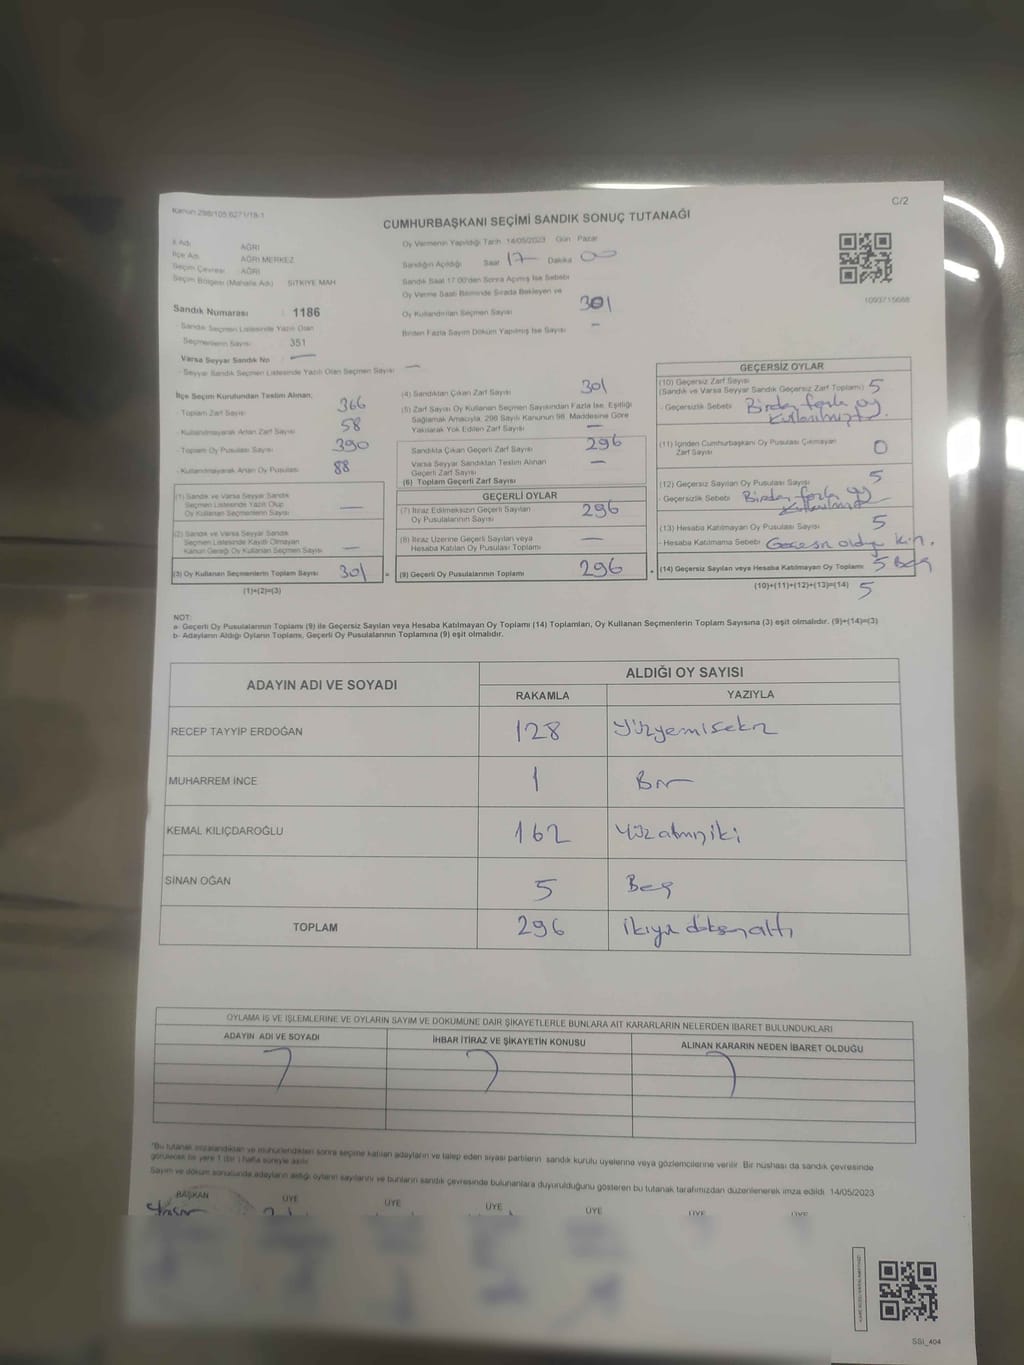 Kanun:298/105,6271/19-1
C/2
CUMHURBAŞKANI SEÇİMİ SANDIK SONUÇ TUTANAĞI
İl Adı AĞRI
İlçe Adı AĞRI MERKEZ
Seçim Çevresi AĞRI
Seçim Bölgesi (Mahalle Adı) SITKIYE MAH
Sandık Numarası 1186
- Sandık Seçmen Listesinde Yazılı Olan
Seçmenlerin Sayısı 351
Varsa Seyyar Sandık No —
- Seyyar Sandık Seçmen Listesinde Yazılı Olan Seçmen Sayısı —
Oy Vermenin Yapıldığı Tarih 14/05/2023 Gün Pazar
Sandığın Açıldığı Saat 17 Dakika 00
Sandık Saat 17:00'den Sonra Açılmış İse Sebebi
Oy Verme Saati Bitiminde Sırada Bekleyen ve
Oy Kullandırılan Seçmen Sayısı 301
Birden Fazla Sayım Döküm Yapılmış İse Sayısı –
1093715688
İlçe Seçim Kurulundan Teslim Alınan;
- Toplam Zarf Sayısı 366
- Kullanılmayarak Artan Zarf Sayısı 58
- Toplam Oy Pusulası Sayısı 390
- Kullanılmayarak Artan Oy Pusulası 88
(1) Sandık ve Varsa Seyyar Sandık
Seçmen Listesinde Yazılı Olup
Oy Kullanan Seçmenlerin Sayısı —
(2) Sandık ve Varsa Seyyar Sandık
Seçmen Listesinde Kayıtlı Olmayan
Kanun Gereği Oy Kullanan Seçmen Sayısı —
(3) Oy Kullanan Seçmenlerin Toplam Sayısı 301 =
(1)+(2)=(3)
(4) Sandıktan Çıkan Zarf Sayısı 301
(5) Zarf Sayısı Oy Kullanan Seçmen Sayısından Fazla İse, Eşitliği
Sağlamak Amacıyla, 298 Sayılı Kanunun 98. Maddesine Göre
Yakılarak Yok Edilen Zarf Sayısı —
Sandıkta Çıkan Geçerli Zarf Sayısı 296
Varsa Seyyar Sandıktan Teslim Alınan
Geçerli Zarf Sayısı —
(6) Toplam Geçerli Zarf Sayısı
GEÇERLİ OYLAR
(7) İtiraz Edilmeksizin Geçerli Sayılan
Oy Pusulalarının Sayısı 296
(8) İtiraz Üzerine Geçerli Sayılan veya
Hesaba Katılan Oy Pusulası Toplamı —
(9) Geçerli Oy Pusulalarının Toplamı 296 +
GEÇERSİZ OYLAR
(10) Geçersiz Zarf Sayısı
(Sandık ve Varsa Seyyar Sandık Geçersiz Zarf Toplamı) 5
- Geçersizlik Sebebi Birden fazla oy
kullanılmıştır.
(11) İçinden Cumhurbaşkanı Oy Pusulası Çıkmayan
Zarf Sayısı 0
(12) Geçersiz Sayılan Oy Pusulası Sayısı 5
- Geçersizlik Sebebi Birden fazla oy
(13) Hesaba Katılmayan Oy Pusulası Sayısı 5
- Hesaba Katılmama Sebebi Geçersiz olduğu için.
(14) Geçersiz Sayılan veya Hesaba Katılmayan Oy Toplamı 5 Beş
(10)+(11)+(12)+(13)=(14) 5
NOT:
a- Geçerli Oy Pusulalarının Toplamı (9) ile Geçersiz Sayılan veya Hesaba Katılmayan Oy Toplamı (14) Toplamları, Oy Kullanan Seçmenlerin Toplam Sayısına (3) eşit olmalıdır. (9)+(14)=(3)
b- Adayların Aldığı Oyların Toplamı, Geçerli Oy Pusulalarının Toplamına (9) eşit olmalıdır.
ADAYIN ADI VE SOYADI
ALDIĞI OY SAYISI
RAKAMLA YAZIYLA
RECEP TAYYİP ERDOĞAN 128 Yüzyirmisekiz
MUHARREM İNCE 1 Bir
KEMAL KILIÇDAROĞLU 162 Yüzatmışiki
SİNAN OĞAN 5 Beş
TOPLAM 296 ikiyüz doksanaltı
OYLAMA İŞ VE İŞLEMLERİNE VE OYLARIN SAYIM VE DÖKÜMÜNE DAİR ŞİKAYETLERLE BUNLARA AİT KARARLARIN NELERDEN İBARET BULUNDUKLARI
ADAYIN ADI VE SOYADI İHBAR İTİRAZ VE ŞİKAYETİN KONUSU ALINAN KARARIN NEDEN İBARET OLDUĞU
"Bu tutanak imzalandıktan ve mühürlendikten sonra seçime katılan adayların ve talep eden siyasi partilerin sandık kurulu üyelerine veya gözlemcilerine verilir. Bir nüshası da sandık çevresinde
görülecek bir yere 1 (bir ) hafta süreyle asılır.
Sayım ve döküm sonucunda adayların aldığı oyların sayılarını ve bunların sandık çevresinde bulunanlara duyurulduğunu gösteren bu tutanak tarafımızdan düzenlenerek imza edildi. 14/05/2023
BAŞKAN ÜYE ÜYE ÜYE ÜYE ÜYE ÜYE
SSI_404